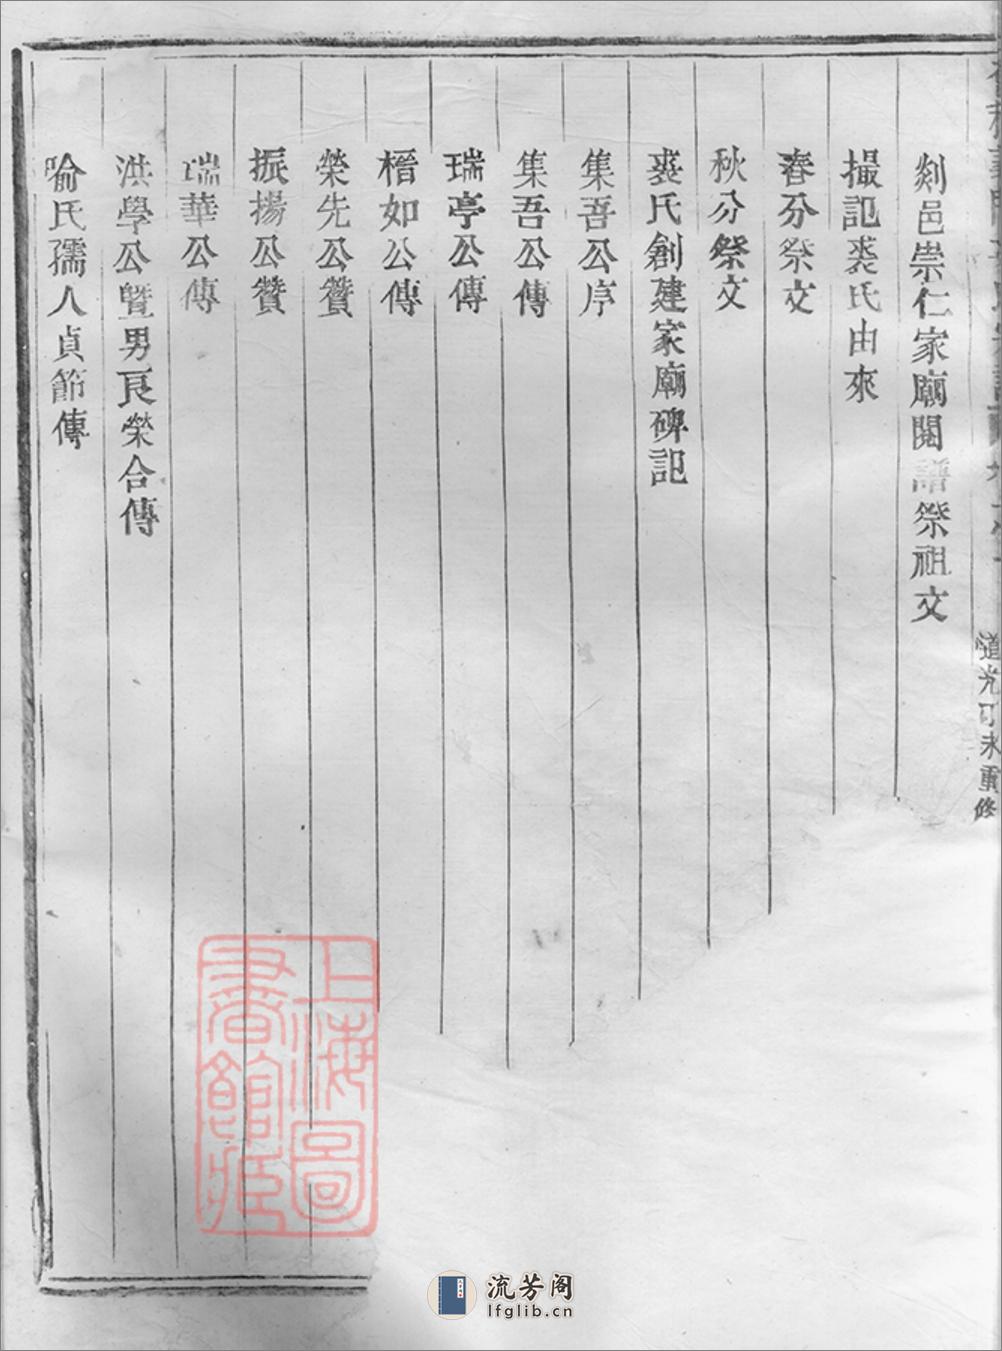 道光丁未重修
剡邑崇仁家廟閱譜祭祖文
撮記裘氏由來
春分祭文
秋分祭文
裘氏創建家廟碑記
集吾公序
集吾公傳
瑞亭公傳
榗如公傳
榮先公贊
振揚公贊
瑞華公傳
洪學公暨男良榮合傳
喻氏孺人貞節傳
上海圖
書館藏
流芳阁
lfglib.cn